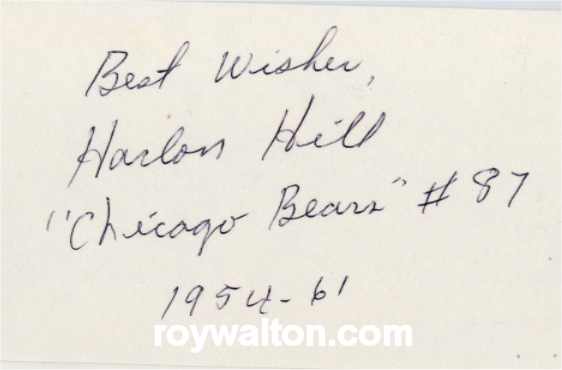 Best Wishes,
Harlon Hill
"Chicago Bears" # 87
1954-61
roywalton.com